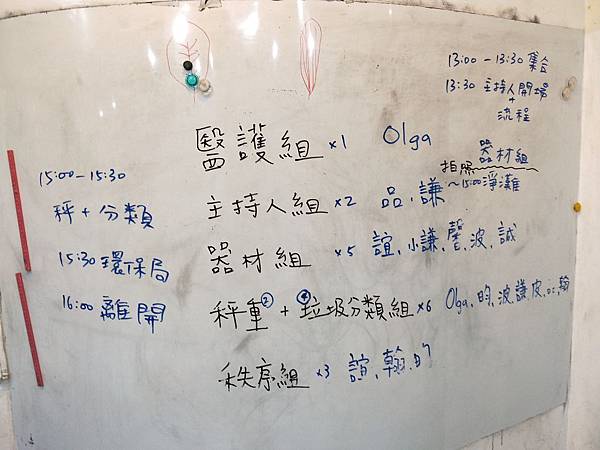 13:00 - 13:30 集合
13:30 主持人開場
+
流程
器材組
拍照
~15:00淨灘
15:00 - 15:30
秤 + 分類
15:30 環保局
16:00 離開
醫護組 ×1 Olga
主持人組 ×2 品、謙
器材組 ×5 誼、小謙、馨、波、誠
秤重② + ④垃圾分類組 ×6 Olga、昀、波、謙、皮、品、翰
秩序組 ×3 誼、翰、昀